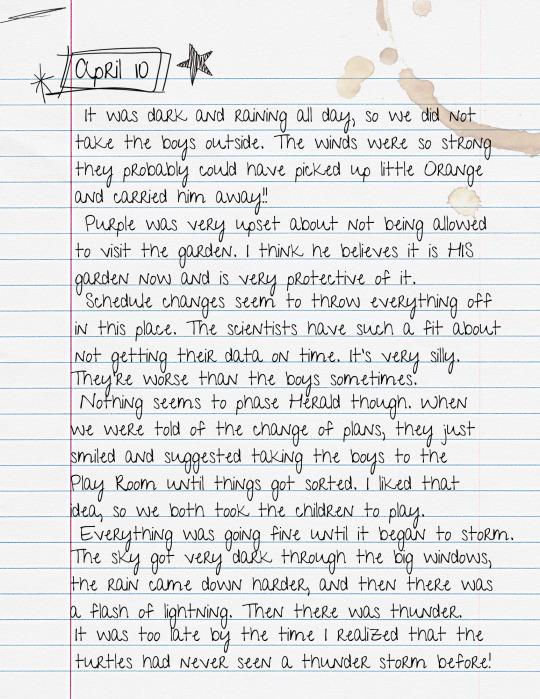 April 10
It was dark and raining all day, so we did not
take the boys outside. The winds were so strong
they probably could have picked up little Orange
and carried him away!!
Purple was very upset about not being allowed
to visit the garden. I think he believes it is HIS
garden now and is very protective of it.
Schedule changes seem to throw everything off
in this place. The scientists have such a fit about
not getting their data on time. It's very silly.
They're worse than the boys sometimes.
Nothing seems to phase Herald though. When
we were told of the change of plans, they just
smiled and suggested taking the boys to the
Play Room until things got sorted. I liked that
idea, so we both took the children to play.
Everything was going fine until it began to storm.
The sky got very dark through the big windows,
the rain came down harder, and then there was
a flash of lightning. Then there was thunder.
It was too late by the time I realized that the
turtles had never seen a thunder storm before!